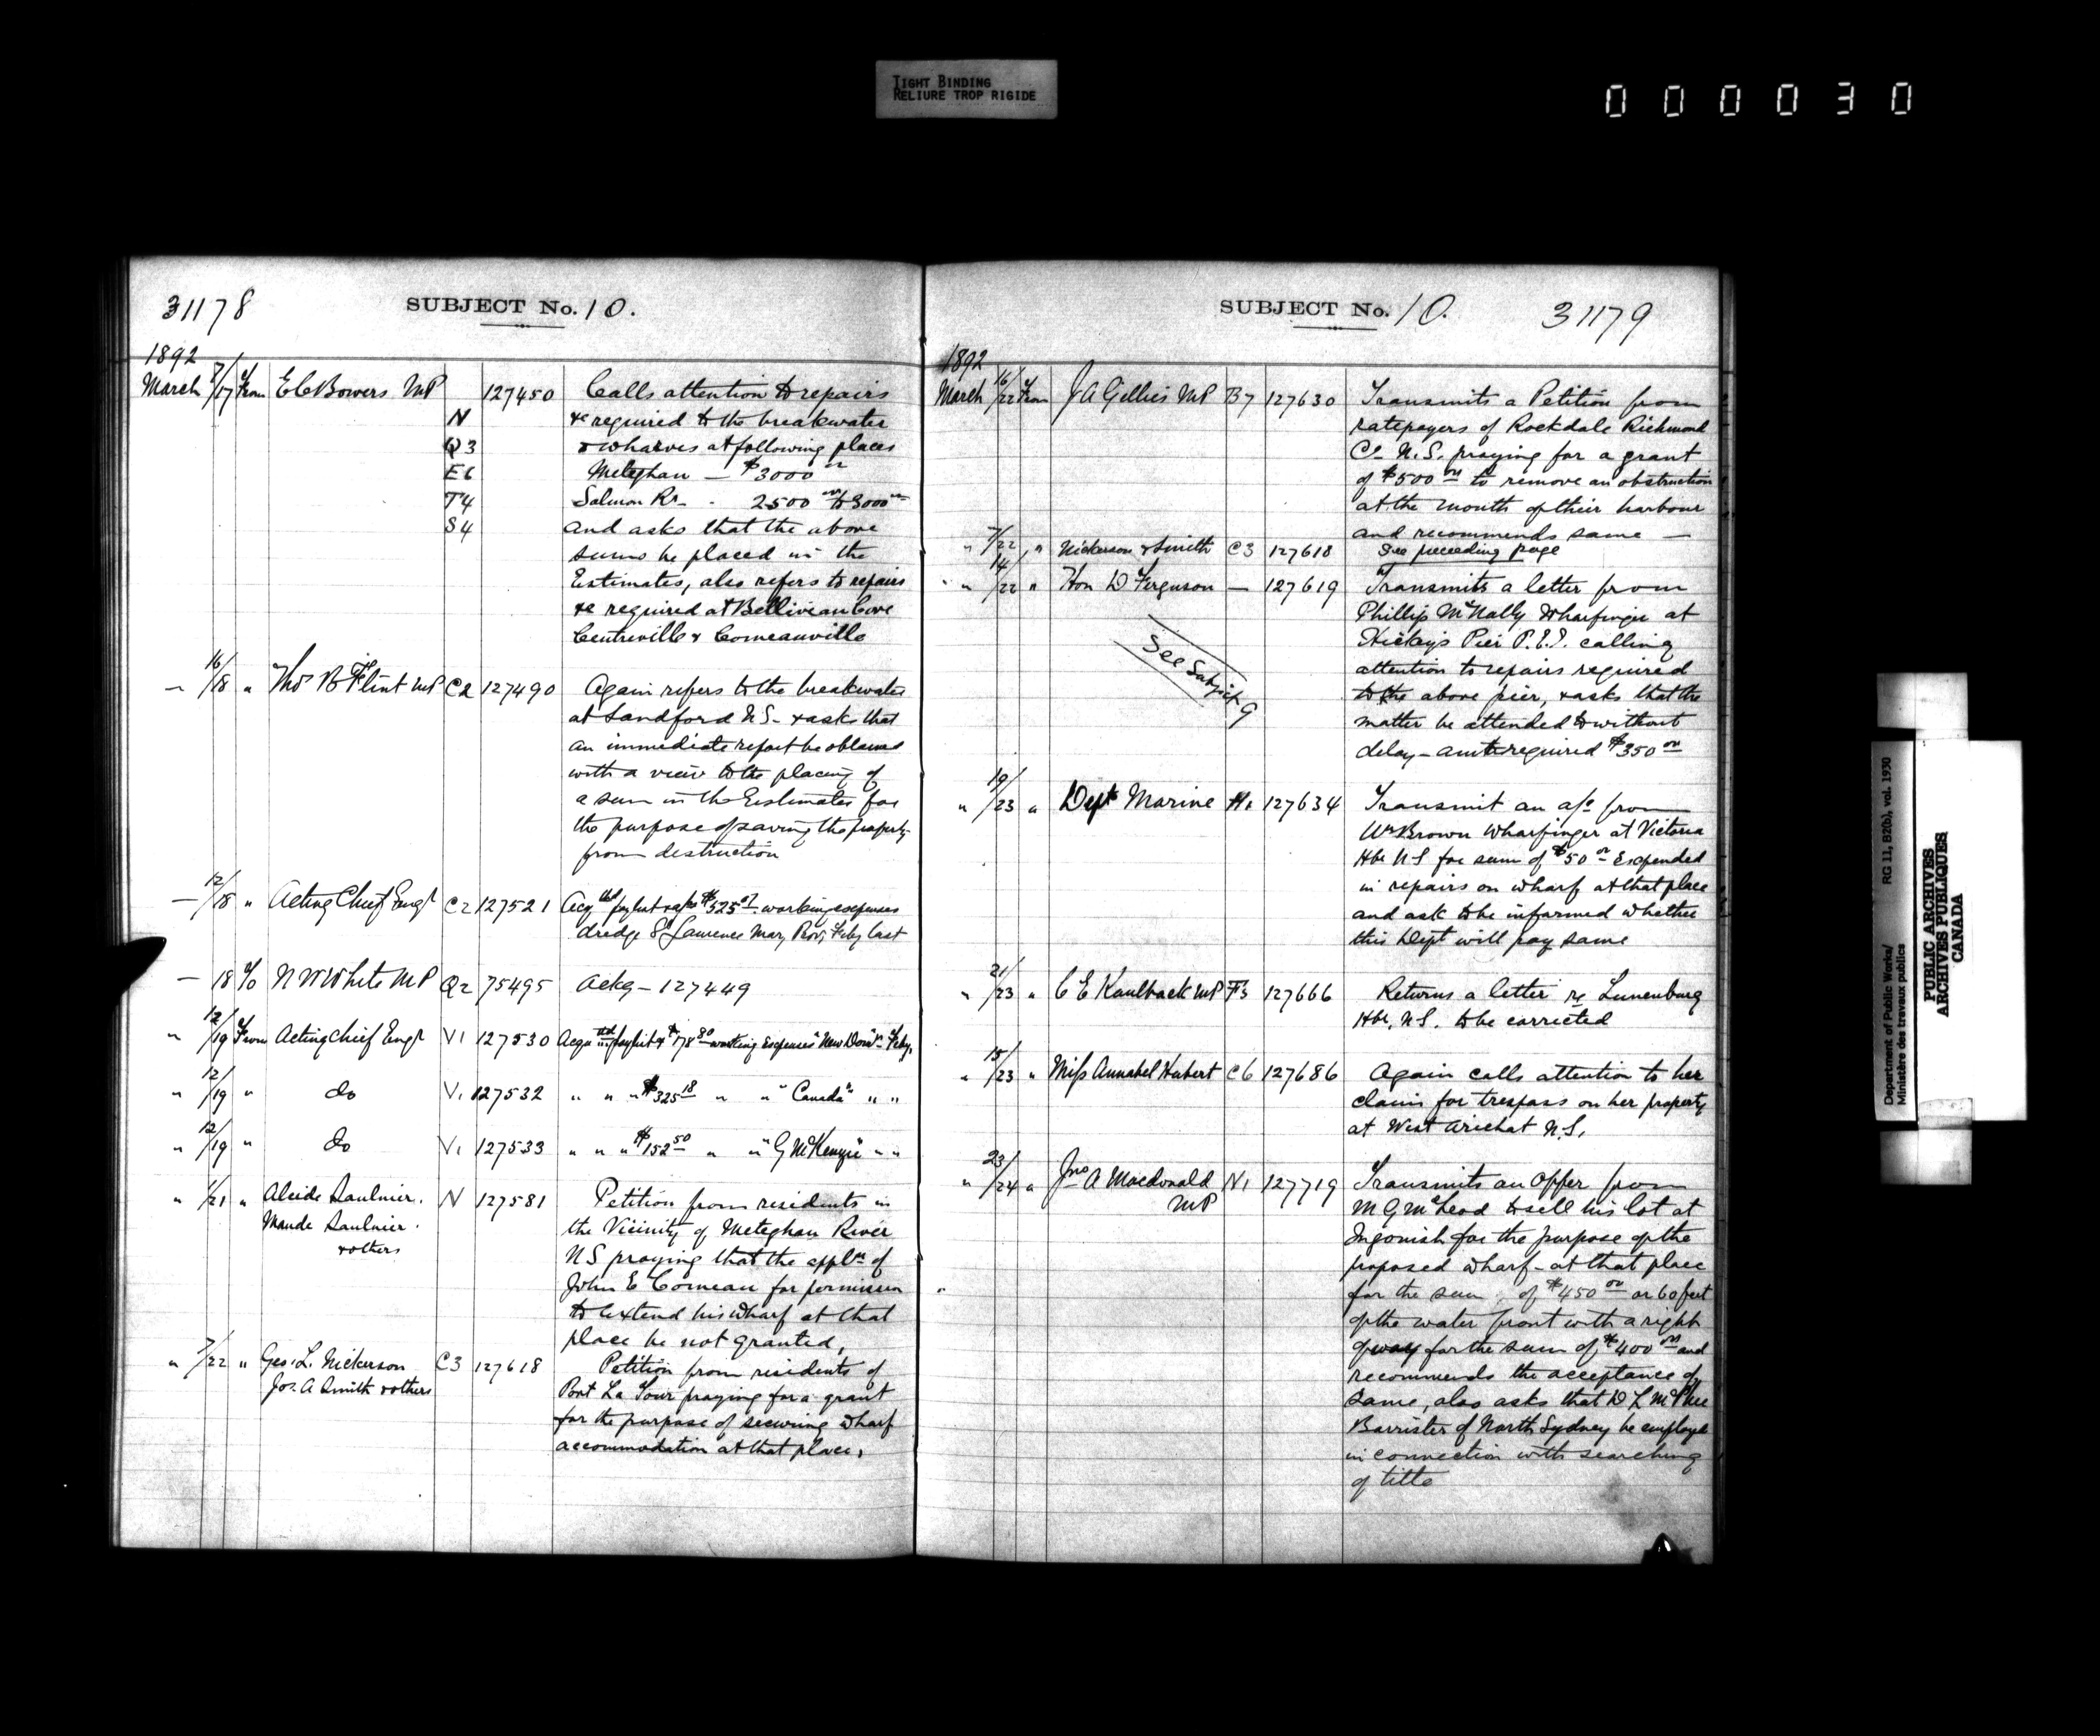 TIGHT BINDING
RELIURE TROP RIGIDE
000030
31178
SUBJECT No. 10.
1892
March 7/17 From E C Bowers MP 127450 Calls attention to repairs
N &c required to the breakwater
Q3 & wharves at following places
E6 Meteghan — $3000 00
T4 Salmon Rr - 2500 00 to 3000 00
S4 and asks that the above
sums be placed in the
Estimates, also refers to repairs
&c required at Belliveau Cove
Centreville & Comeauville
— 16/18 " Thos B Flint MP C2 127490 Again refers to the breakwater
at Sandford N.S. & asks that
an immediate report be obtained
with a view to the placing of
a sum in the Estimates for
the purpose of saving the property
from destruction
— 12/18 " Acting Chief Engr C2 127521 paylist $525 working expenses
dredge St Lawrence Mar, Prov, Feby last
— 18 T/o N W White MP Q2 75495 Ackg — 127449
" 12/19 From Acting Chief Engr V1 127530 paylist $178 80 working expenses "New Domn" Feby.
" 12/19 " do V1 127532 " " " $325 18 " " "Canada" " "
" 12/19 " do V1 127533 " " " $152 50 " " "G McKenzie" " "
" 1/21 " Alcide Saulnier. N 127581 Petition from residents in
Maude Saulnier. the Vicinity of Meteghan River
& others N S praying that the appln of
John E Comeau for permission
to extend his wharf at that
place be not granted,
" 7/22 " Geo. L. Nickerson C3 127618 Petition from residents of
Jos. A Smith & others Port La Tour praying for a grant
for the purpose of securing wharf
accommodation at that place.
SUBJECT No. 10. 31179
1892
March 16/22 From J A Gillies MP B7 127630 Transmits a Petition from
ratepayers of Rockdale Richmond
Co. N.S. praying for a grant
of $500 00 to remove an obstruction
at the mouth of their harbour
and recommends same —
" 7/22 " Nickerson & Smith C3 127618 See preceeding page
" 14/22 " Hon D Ferguson — 127619 Transmits a letter from
Phillip McNally Wharfinger at
Hickeys Pier P.E.I. calling
See Subject 9
attention to repairs required
to the above pier, & asks that the
matter be attended to without
delay — amt required $350 00
" 19/23 " Dept Marine H1 127634 Transmit an a/c from
Wm Brown Wharfinger at Victoria
Hbr N S for sum of $50 00 Expended
in repairs on wharf at that place
and ask to be informed whether
this Dept will pay same
" 21/23 " C E Kaulback MP F3 127666 Returns a letter re Lunenburg
Hbr, N.S. to be corrected
" 15/23 " Miss Annabel Hubert C6 127686 Again calls attention to her
claim for trespass on her property
at West Arichat N.S.
" 23/24 " Jno A Macdonald N1 127719 Transmits an Offer from
MP M G McLeod to sell his lot at
Ingonish for the purpose of the
proposed wharf — at that place
for the sum of $450 00 or 60 feet
of the water front with a right
of way for the sum of $400 00 and
recommends the acceptance of
same, also asks that D L McPhee
Barrister of North Sydney be employed
in connection with searching
of title
Department of Public Works/ RG 11, B2(b), vol. 1930
Ministère des travaux publics
PUBLIC ARCHIVES
ARCHIVES PUBLIQUES
CANADA